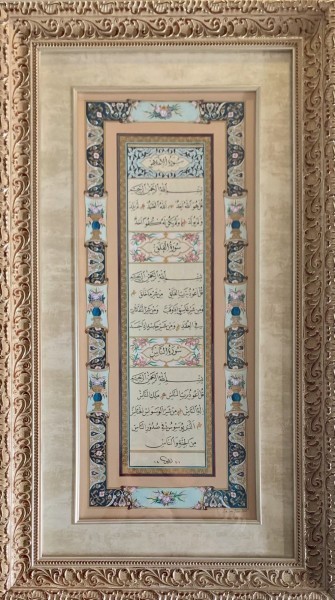 سورة الاخلاص
بسم الله الرحمن الرحيم
قل هو الله احد الله الصمد لم يلد
ولم يولد ولم يكن له كفوا احد
سورة الفلق
بسم الله الرحمن الرحيم
قل اعوذ برب الفلق من شر ما خلق
ومن شر غاسق اذا وقب ومن شر النفاثات
في العقد ومن شر حاسد اذا حسد
سورة الناس
بسم الله الرحمن الرحيم
قل اعوذ برب الناس ملك الناس
اله الناس من شر الوسواس الخناس
الذي يوسوس في صدور الناس
من الجنة والناس